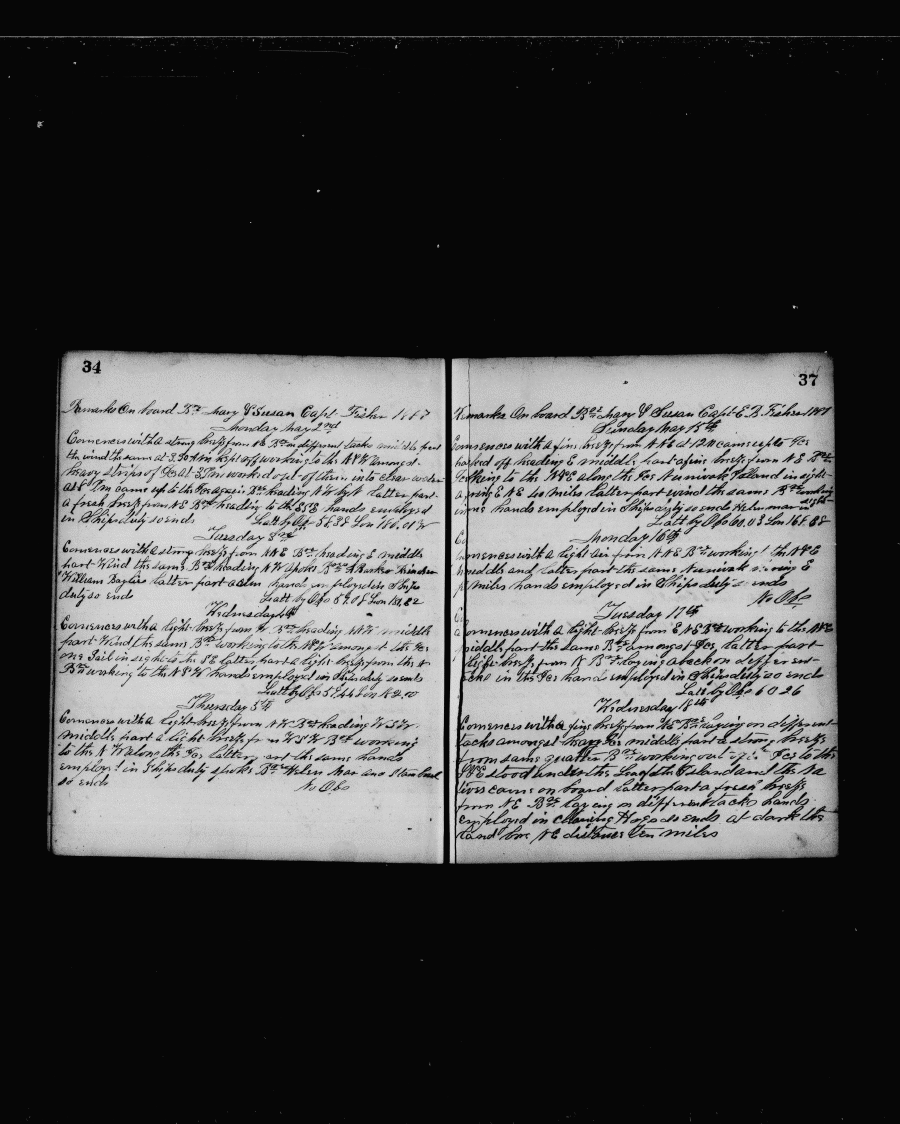 34
Remarks On board Bk Mary & Susan Capt Fisher 1887
Monday May 2nd
Comences with a strong breeze from NE Bk on different tacks middle part
the wind the same at 3.30 AM kept off working to the N&W amongst
heavy strips of Ice at 5 PM worked out of them into clear water
at 8 PM came up to the Ice again Bk heading NW by N latter part
a fresh breeze from NE Bk heading to the ESE hands employed
in Ships duty so ends Latt by Obs 58.28 Lon 180.01 W
Tuesday 3rd
Comences with a strong breeze from NNE Bk heading E middle
part Wind the same Bk heading NW spoke Bks
William Baylies latter part a calm hands employed in Ships
duty so ends Latt by Obs 59.08 Lon
Wednesday 4th
Comences with a light breeze from N. Bk heading NNW middle
part Wind the same Bk working to the N&W amongst the Ice
one Sail in sight to the SE latter part a light breeze from the N
Bk working to the N&W hands employed in Ships duty so ends
Latt by Obs 59.44 Lon
Thursday 5th
Comences with a light breeze from NW Bk heading WSW
middle part a light breeze from WSW Bk working
to the NW along the Ice latter part the same hands
employed in Ships duty spoke Bk Helen Mar and
so ends No Obs
37
Remarks On board Bk Mary & Susan Capt E.B. Fisher 1887
Sunday May 15th
Comences with a fine breeze from NNE at 12 M came up to Ice
hauled off heading E middle part a fine breeze from NE Bk
working to the N&E along the Ice Nunivak Island in sight
bearing E NE 40 miles latter part wind the same Bk working
in Ice hands employed in Ships duty so ends Helen mar in sight
Latt by Obs 60.03 Lon 168.28
Monday 16th
Comences with a light air from NNE Bk working to the N&E
middle and latter part the same Nunivak bearing E
miles hands employed in Ships duty so ends
No Obs
Tuesday 17th
Comences with a light breeze from ENE Bk working to the N&E
middle part the same Bk amongst Ice, latter part
light breeze from N Bk laying aback on different
tacks in the Ice hands employed in Ships duty so ends
Latt by Obs 60.26
Wednesday 18th
Comences with a fine breeze from NE Bk laying on different
tacks amongst heavy Ice middle part a strong breeze
from same quarter Bk working out of the Ice to the
S&E stood under the Lee of the Island and the Na
tives came on board latter part a fresh breeze
from NE Bk laying on different tacks hands
employed in cleaning Hogs so ends at dark the
Land bore NE distance ten miles